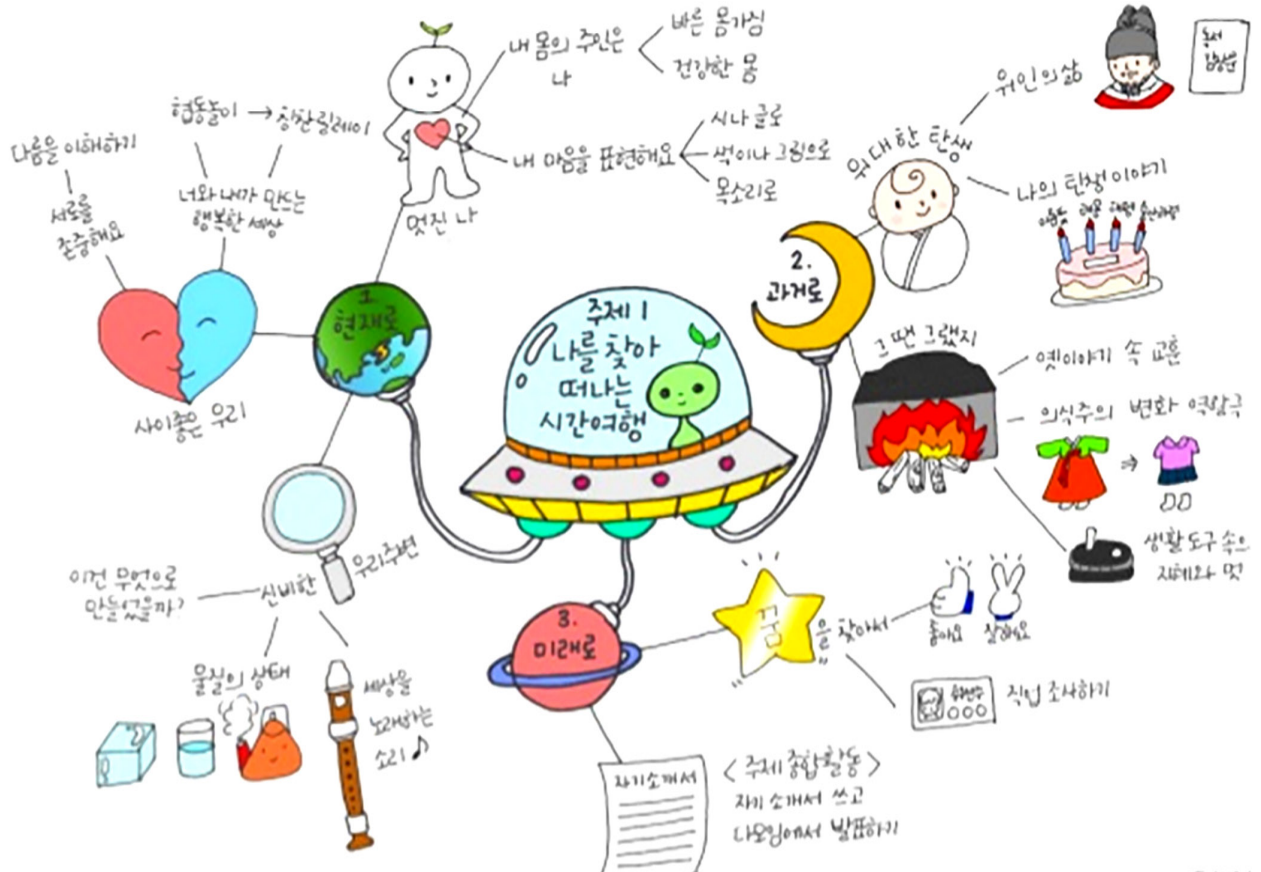 주제 1
나를 찾아
떠나는
시간여행
1.
현재로
멋진 나
내 몸의 주인은
나
바른 몸가짐
건강한 몸
내 마음을 표현해요
시나 글로
색이나 그림으로
목소리로
사이좋은 우리
다름을 이해하기
서로를
존중해요
협동놀이 → 칭찬릴레이
너와 내가 만드는
행복한 세상
신비한 우리주변
이건 무엇으로
만들었을까?
물질의 상태
세상을
노래하는
소리♪
2.
과거로
위대한 탄생
위인의 삶
독서
감상문
나의 탄생 이야기
그 땐 그랬지
옛이야기 속 교훈
의식주의 변화 역할극
생활도구 속의
지혜와 멋
3.
미래로
"꿈을" 찾아서
좋아요 잘해요
직업 조사하기
자기소개서
<주제 종합활동>
자기 소개서 쓰고
다모임에서 발표하기